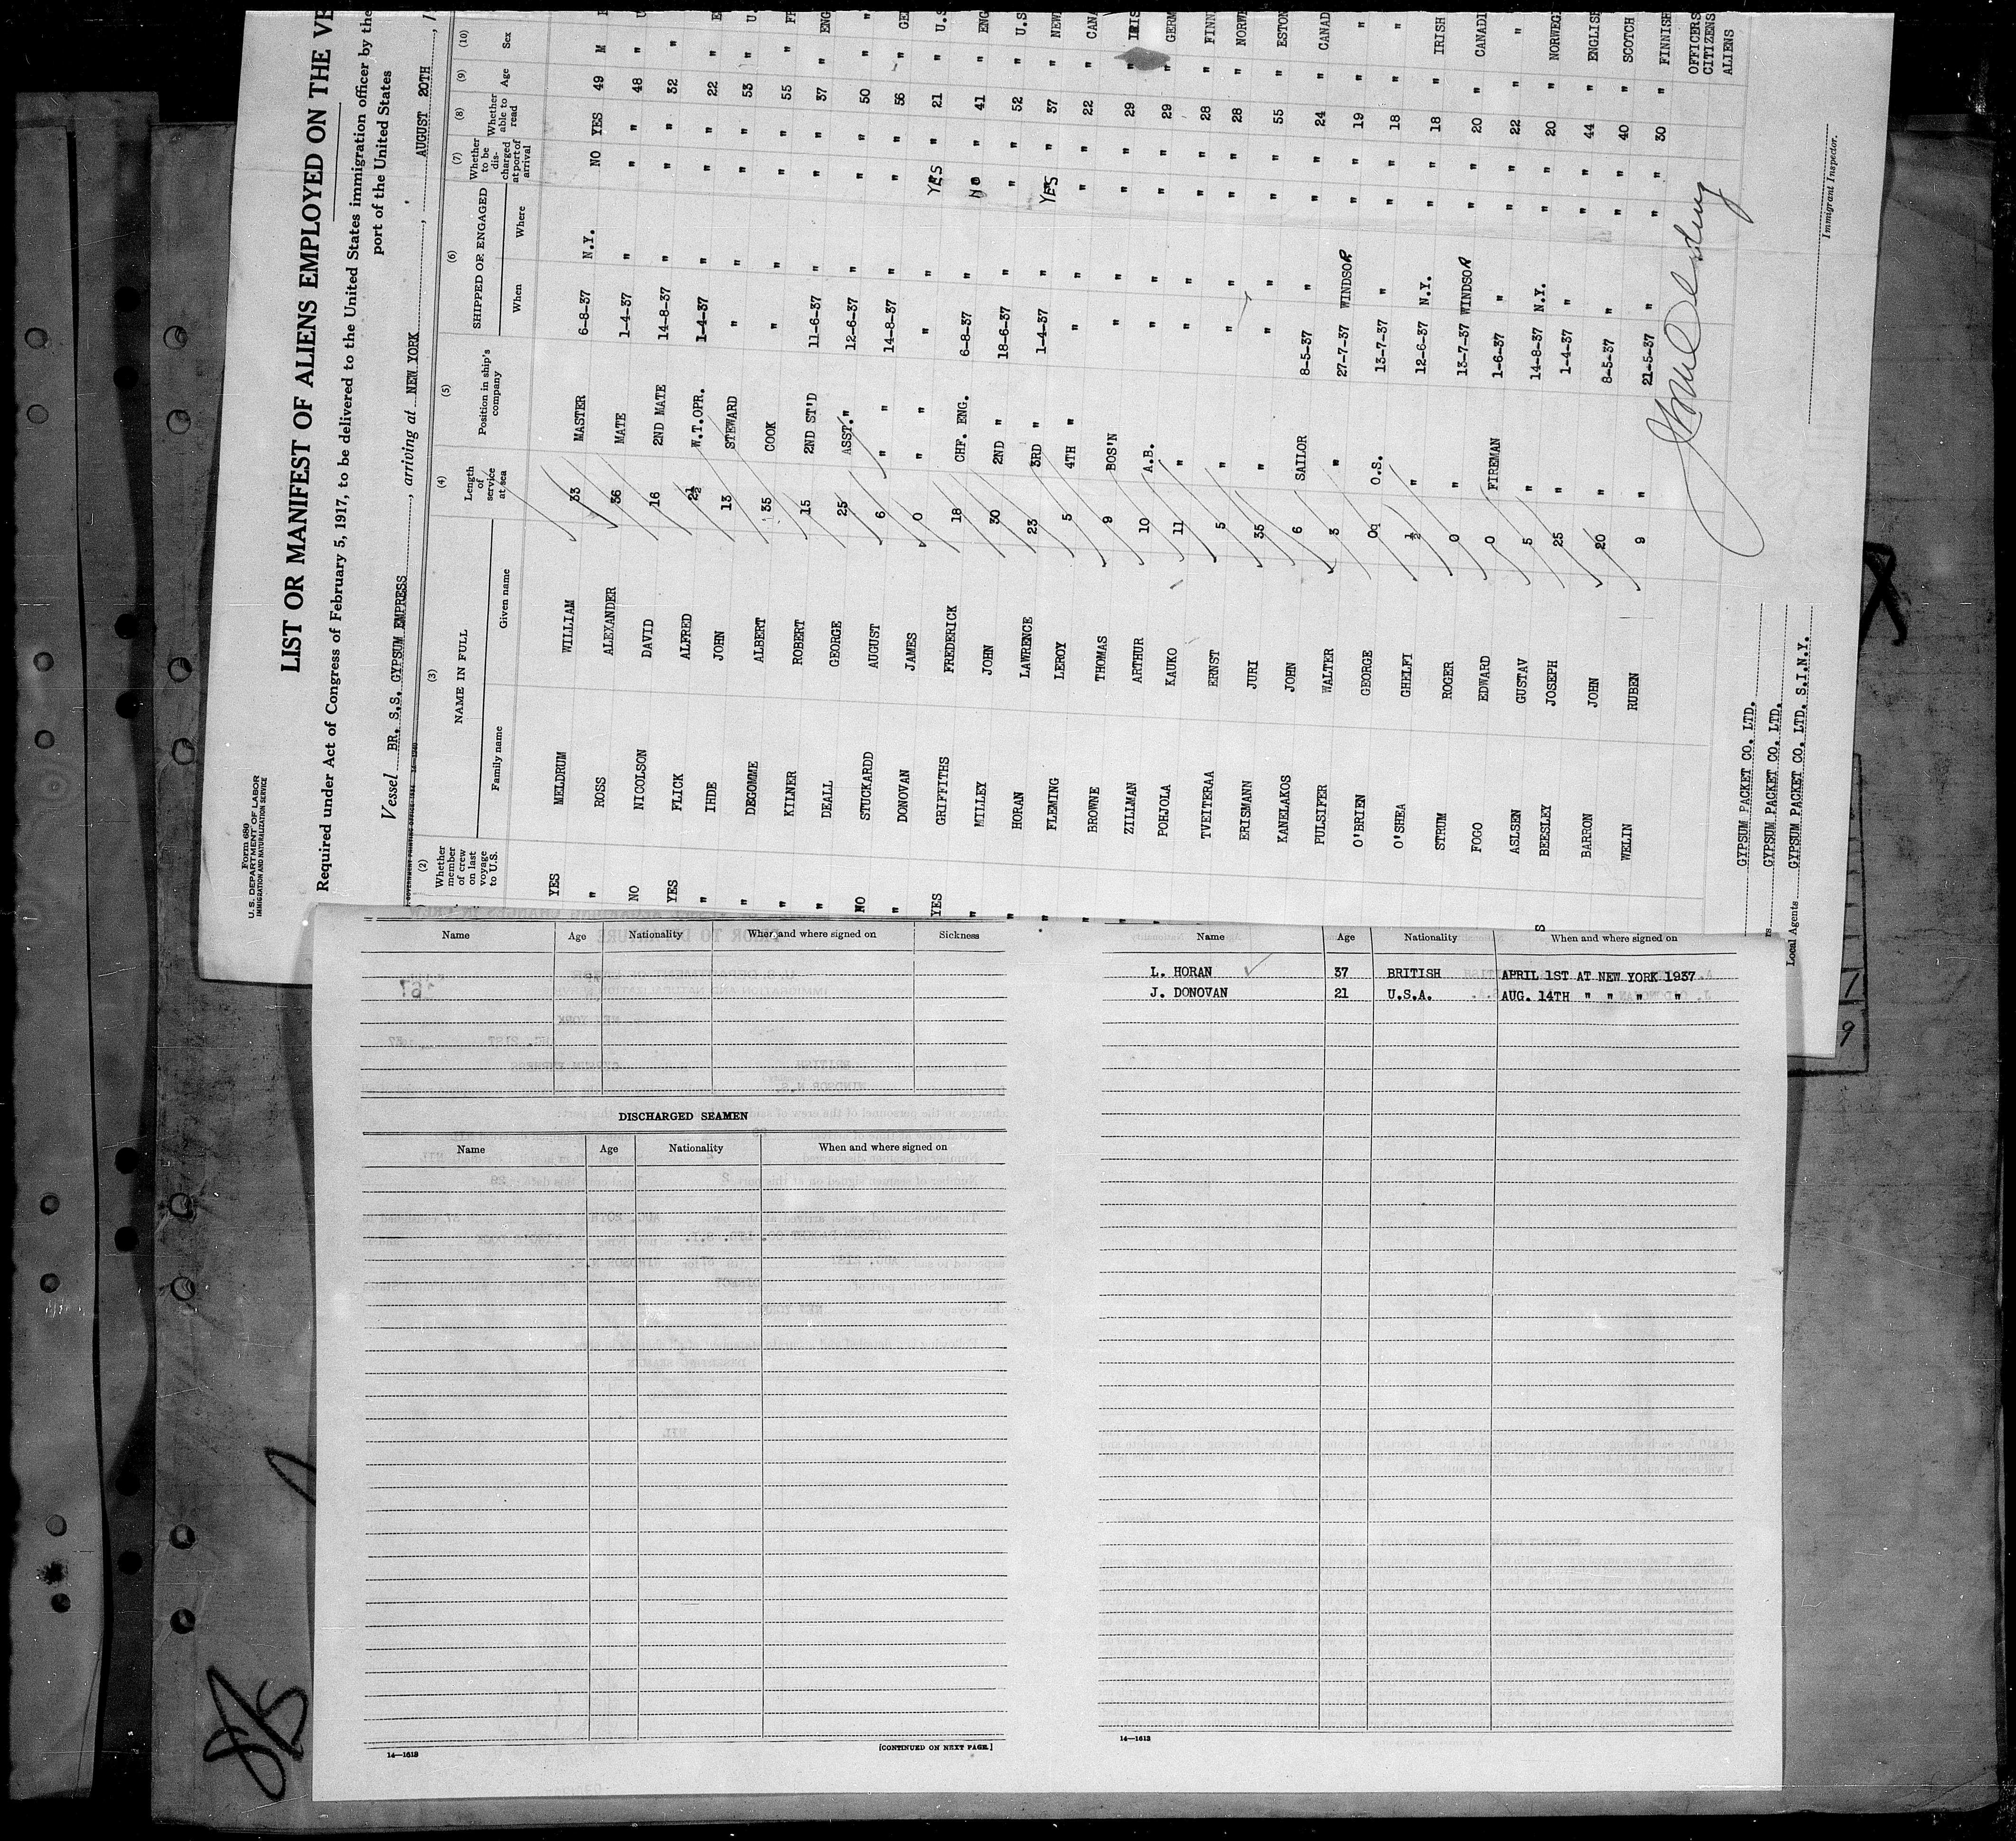 Form 680
U.S. DEPARTMENT OF LABOR
IMMIGRATION AND NATURALIZATION SERVICE
LIST OR MANIFEST OF ALIENS EMPLOYED ON THE VE
Required under Act of Congress of February 5, 1917, to be delivered to the United States immigration officer by the
port of the United States
Vessel BR. S.S. GYPSUM EMPRESS, arriving at NEW YORK, AUGUST 20TH, 1
(2) (3) (4) (5) (6) (7) (8) (9) (10)
Whether member of crew on last voyage to U.S. NAME IN FULL Family name Given name Length of service at sea Position in ship's company SHIPPED OR ENGAGED When Where Whether to be discharged at port of arrival Whether able to read Age Sex
YES MELDRUM WILLIAM 33 MASTER 6-8-37 N.Y. NO YES 49 M
" ROSS ALEXANDER 36 MATE 1-4-37 " " " 48 " U
NO NICOLSON DAVID 16 2ND MATE 14-8-37 " " " 32 "
YES FLICK ALFRED 2½ W.T.OPR. 1-4-37 " " " 22 " E
" IHDE JOHN 13 STEWARD " " " " 53 " U.
" DEGOMME ALBERT 35 COOK " " " " 55 " FR
" KILNER ROBERT 15 2ND ST'D 11-6-37 " " " 37 " ENG
" DEALL GEORGE 25 ASST." 12-6-37 " " " 50 " "
NO STUCKARDD AUGUST 6 " 14-8-37 " " " 56 " GE
" DONOVAN JAMES 0 " " " YES " 21 " U.S
YES GRIFFITHS FREDERICK 18 CHF. ENG. 6-8-37 " NO " 41 " ENG
" MILLEY JOHN 30 2ND " 18-6-37 " " " 52 " U.S
" HORAN LAWRENCE 23 3RD " 1-4-37 " YES " 37 " NEW
" FLEMING LEROY 5 4TH " " " " " 22 " CANA
" BROWNE THOMAS 9 BOS'N " " " " 29 " IRIS
" ZILLMAN ARTHUR 10 A.B. " " " " 29 " GERM
POHJOLA KAUKO 11 " " " " " 28 " FINN
TVEITERAA ERNST 5 " " " " " 28 " NORWE
ERISMANN JURI 35 " " " " " 55 " ESTON
KANELAKOS JOHN 6 SAILOR 8-5-37 " " " 24 " CANAD
PULSIFER WALTER 3 " 27-7-37 WINDSOR " " 19 " "
O'BRIEN GEORGE 0 O.S. 13-7-37 " " " 18 " "
O'SHEA GHELFI ½ " 12-6-37 N.Y. " " 18 " IRISH
STRUM ROGER 0 " 13-7-37 WINDSOR " " 20 " CANADI
FOGO EDWARD 0 FIREMAN 1-6-37 " " " 22 " "
ASLSEN GUSTAV 5 " 14-8-37 N.Y. " " 20 " NORWEG
BEESLEY JOSEPH 25 " 1-4-37 " " " 44 " ENGLIS
BARRON JOHN 20 " 8-5-37 " " " 40 " SCOTCH
WELIN RUBEN 9 " 21-5-37 " " " 30 " FINNISH
OFFICERS
CITIZENS
ALIENS
GYPSUM PACKET CO. LTD.
rs GYPSUM PACKET CO. LTD.
Local Agents GYPSUM PACKET CO. LTD. S.I.N.Y.
Immigrant Inspector.
Name Age Nationality When and where signed on Sickness
DISCHARGED SEAMEN
Name Age Nationality When and where signed on
14—1613
[CONTINUED ON NEXT PAGE.]
Name Age Nationality When and where signed on
L. HORAN 37 BRITISH APRIL 1ST AT NEW YORK 1937
J. DONOVAN 21 U.S.A. AUG. 14TH " " " "
14—1613